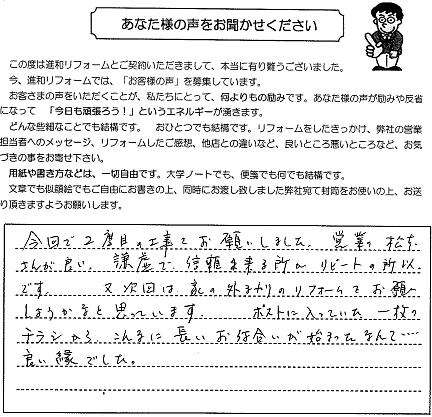 あなた様の声をお聞かせください
この度は進和リフォームとご契約いただきまして、本当に有り難うございました。
今、進和リフォームでは、「お客様の声」を募集しています。
お客さまの声をいただくことが、私たちにとって、何よりもの励みです。あなた様の声が励みや反省
になって 「今日も頑張ろう！」というエネルギーが湧きます。
どんな些細なことでも結構です。 おひとつでも結構です。リフォームをしたきっかけ、弊社の営業
担当者へのメッセージ、リフォームしたご感想、他店との違いなど、良いところ悪いところなど、お気
づきの事をお寄せ下さい。
用紙や書き方などは、一切自由です。大学ノートでも、便箋でも何でも結構です。
文章でも似顔絵でもご自由にお書きの上、同時にお渡し致しました弊社宛て封筒をお使いの上、お送
り頂きますようお願いします。
今回で2度目の工事をお願いしました。営業の松本
さんが良い。謙虚で、信頼出来る所がリピートの所以
です。 又次回は、家の外まわりのリフォームをお願い
しようかなと思っています。 ポストに入っていた一枚の
チラシから、こんなに長いお付合いが始まったなんて……
良い縁でした。